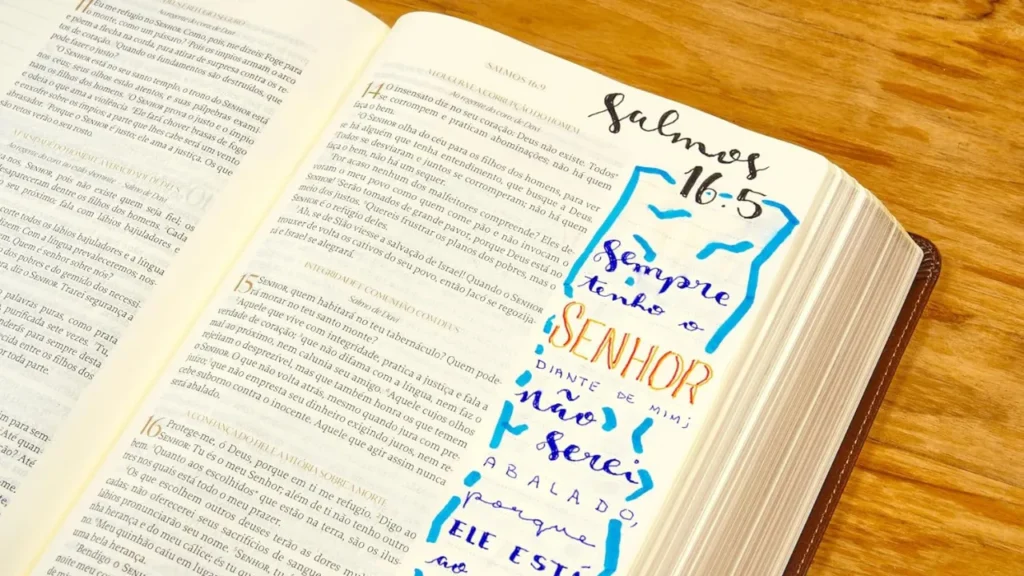 Eu me refugio no SENHOR. Como, pois, me dizeis: Foge para
monte, como um pássaro? Pois os ímpios armam o arco
e põem a flecha na corda, para atirar de surpresa contra os retos
de coração. Quando os fundamentos são destruídos, que
pode fazer o justo?
O SENHOR está no seu santo templo, o trono do SENHOR está
nos céus; seus olhos estão atentos, e suas pálpebras exami-
nam os filhos dos homens. O SENHOR prova o justo e o ímpio
e odeia o que ama a violência. Ele fará chover brasas de fogo
e enxofre sobre os ímpios; a parte que lhes cabe será um vento
abrasador. Porque o SENHOR é justo e ama a justiça. Os que
verão o seu rosto.
SENHOR, pois não existe quem seja fiel; os
desapareceram dentre os filhos dos homens. Cada
o seu próximo; fala com lábios bajuladores e
corte todos os lábios bajuladores e a língua
Com a língua prevaleceremos; nos-
Quem é senhor sobre nós?
e do gemido dos necessita-
diz o SENHOR. Trarei segurança a
palavras puras, como prata
purificada sete vezes. Tu,
para sempre desta
entre os filhos
por toda parte.
SALMOS 16.9
14
O insensato diz no seu coração: Deus não existe. Todos
se corrompem e praticam abominações; não há quem
faça o bem.
O SENHOR olha do céu para os filhos dos homens, para ver
se há alguém que tenha entendimento, que busque a Deus.
Todos se desviaram e juntos se corromperam; não há quem
faça o bem, não há nem um sequer.
Por acaso nenhum dos malfeitores compreende? Eles de-
voram o meu povo como quem come pão e não invocam o
SENHOR. Serão tomados de grande pavor, porque Deus está no
meio dos justos. Quereis frustrar os planos dos pobres, mas o
SENHOR é o refúgio deles.
Ah, se de Sião viesse a salvação de Israel! Quando o SENHOR
mudar de volta os cativos do seu povo, então Jacó se regozija-
rá e Israel se alegrará.
INTEGRIDADE E COMUNHÃO COM DEUS
Salmo de Davi
15
SENHOR, quem habitará no teu tabernáculo? Quem pode-
rá morar no teu santo monte?
Aquele que vive com integridade, pratica a justiça e fala a
verdade de coração; que não difama com a língua, nem faz o
mal ao próximo, nem calunia seu amigo. Aquele cujos olhos
rejeitam o desprezível, mas que também honra os que temem
o SENHOR. O que não volta atrás, mesmo quando jura com pre-
juízo; que não empresta seu dinheiro exigindo juros, nem re-
cebe suborno contra o inocente. Aquele que agir assim nunca
será abalado.
A CONFIANÇA DO FIEL E A VITÓRIA SOBRE A MORTE
16
Protege-me, ó Deus, porque em ti me refugio. Digo ao
SENHOR: Tu és o meu Senhor; além de ti não tenho outro
bem. Quanto aos escolhidos que estão na terra, são os ilus-
tres nos quais está todo o meu prazer.
Os que escolhem outros deuses terão as dores multi-
plicadas; não oferecerei seus sacrifícios de sangue, nem meus
lábios pronunciarão seus nomes. Tu, SENHOR, és a porção da
minha herança e do meu cálice; és tu que
Meu quinhão caiu em lugares
uma bela herança.
Bendigo o SENHOR
noite meu
Salmos
16:5
Sempre
tenho o
SENHOR
DIANTE DE MIM;
não
Serei
ABALADO,
porque
ELE ESTÁ
ao